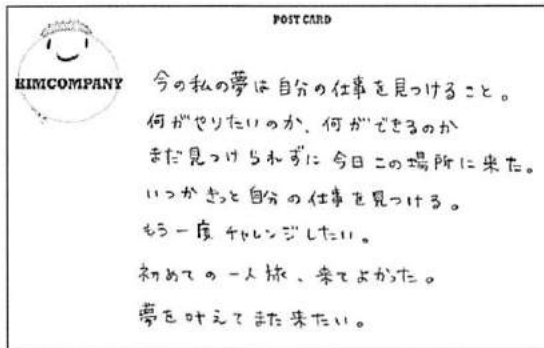 POST CARD
KIMCOMPANY
今の私の夢は自分の仕事を見つけること。
何がやりたいのか、何ができるのか
まだ見つけられずに今日この場所に来た。
いつかきっと自分の仕事を見つける。
もう一度チャレンジしたい。
初めての一人旅、来てよかった。
夢を叶えてまた来たい。